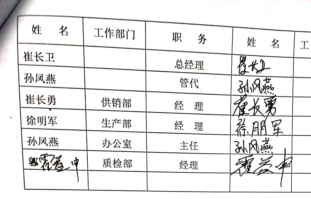 姓 名 工作部门 职 务 姓 名 工
崔长卫 总经理 崔长卫
孙凤燕 管代 孙凤燕
崔长勇 供销部 经 理 崔长勇
徐明军 生产部 经 理 徐明军
孙凤燕 办公室 主任 孙凤燕
霍益中 质检部 经理 霍益中